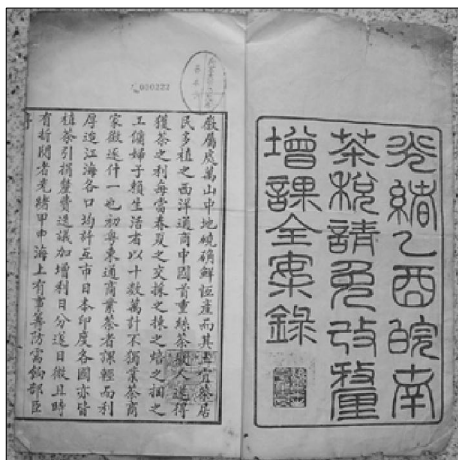 光緒乙酉皖南
茶稅請免改釐
增課全案錄
000222
徽屬處萬山中地磽确鮮恆產而其土宜茶居
民多植之西洋通商中國首重絲茶徽人遂得
獲茶之利每當春夏之交採之揉之焙之拍之
工傭婦子賴生活者以十數萬計不獨業茶商
家徼逐什一也初粵東通商業茶者課輕而利
厚迨江海各口均許互市日本印度各國亦皆
植茶引捐釐費遞議加增利日分遂日微且時
有折閱者光緒甲申海上有事籌防需餉部臣